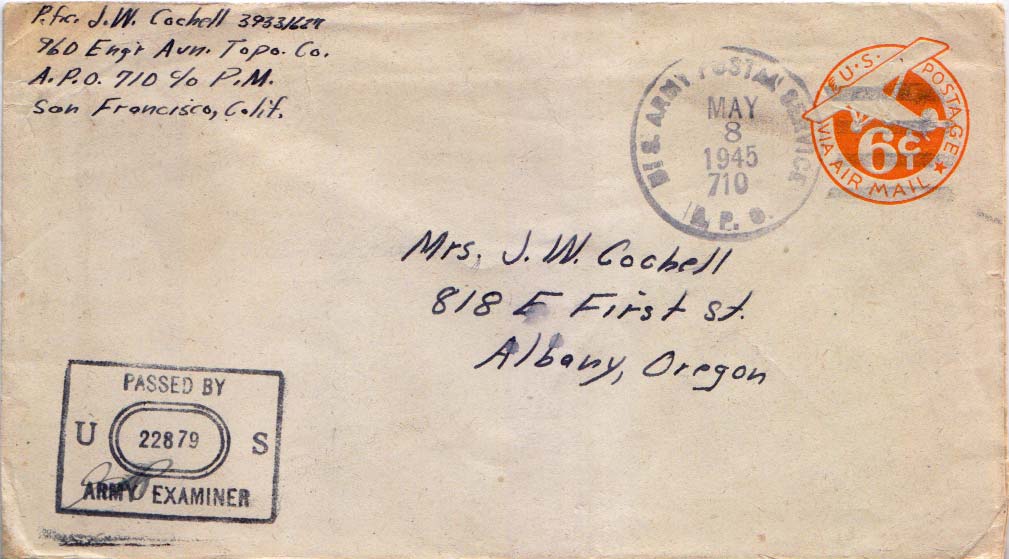 P.fc. J.W. Cochell 39331627
960 Engr Avn. Topo. Co.
A.P.O. 710 c/o P.M.
San Francisco, Calif.
U.S. ARMY POSTAL SERVICE
MAY
8
1945
710
A. P. O.
U.S. POSTAGE
6¢
VIA AIR MAIL
Mrs. J.W. Cochell
818 E First st.
Albany, Oregon
PASSED BY
U 22879 S
ARMY EXAMINER